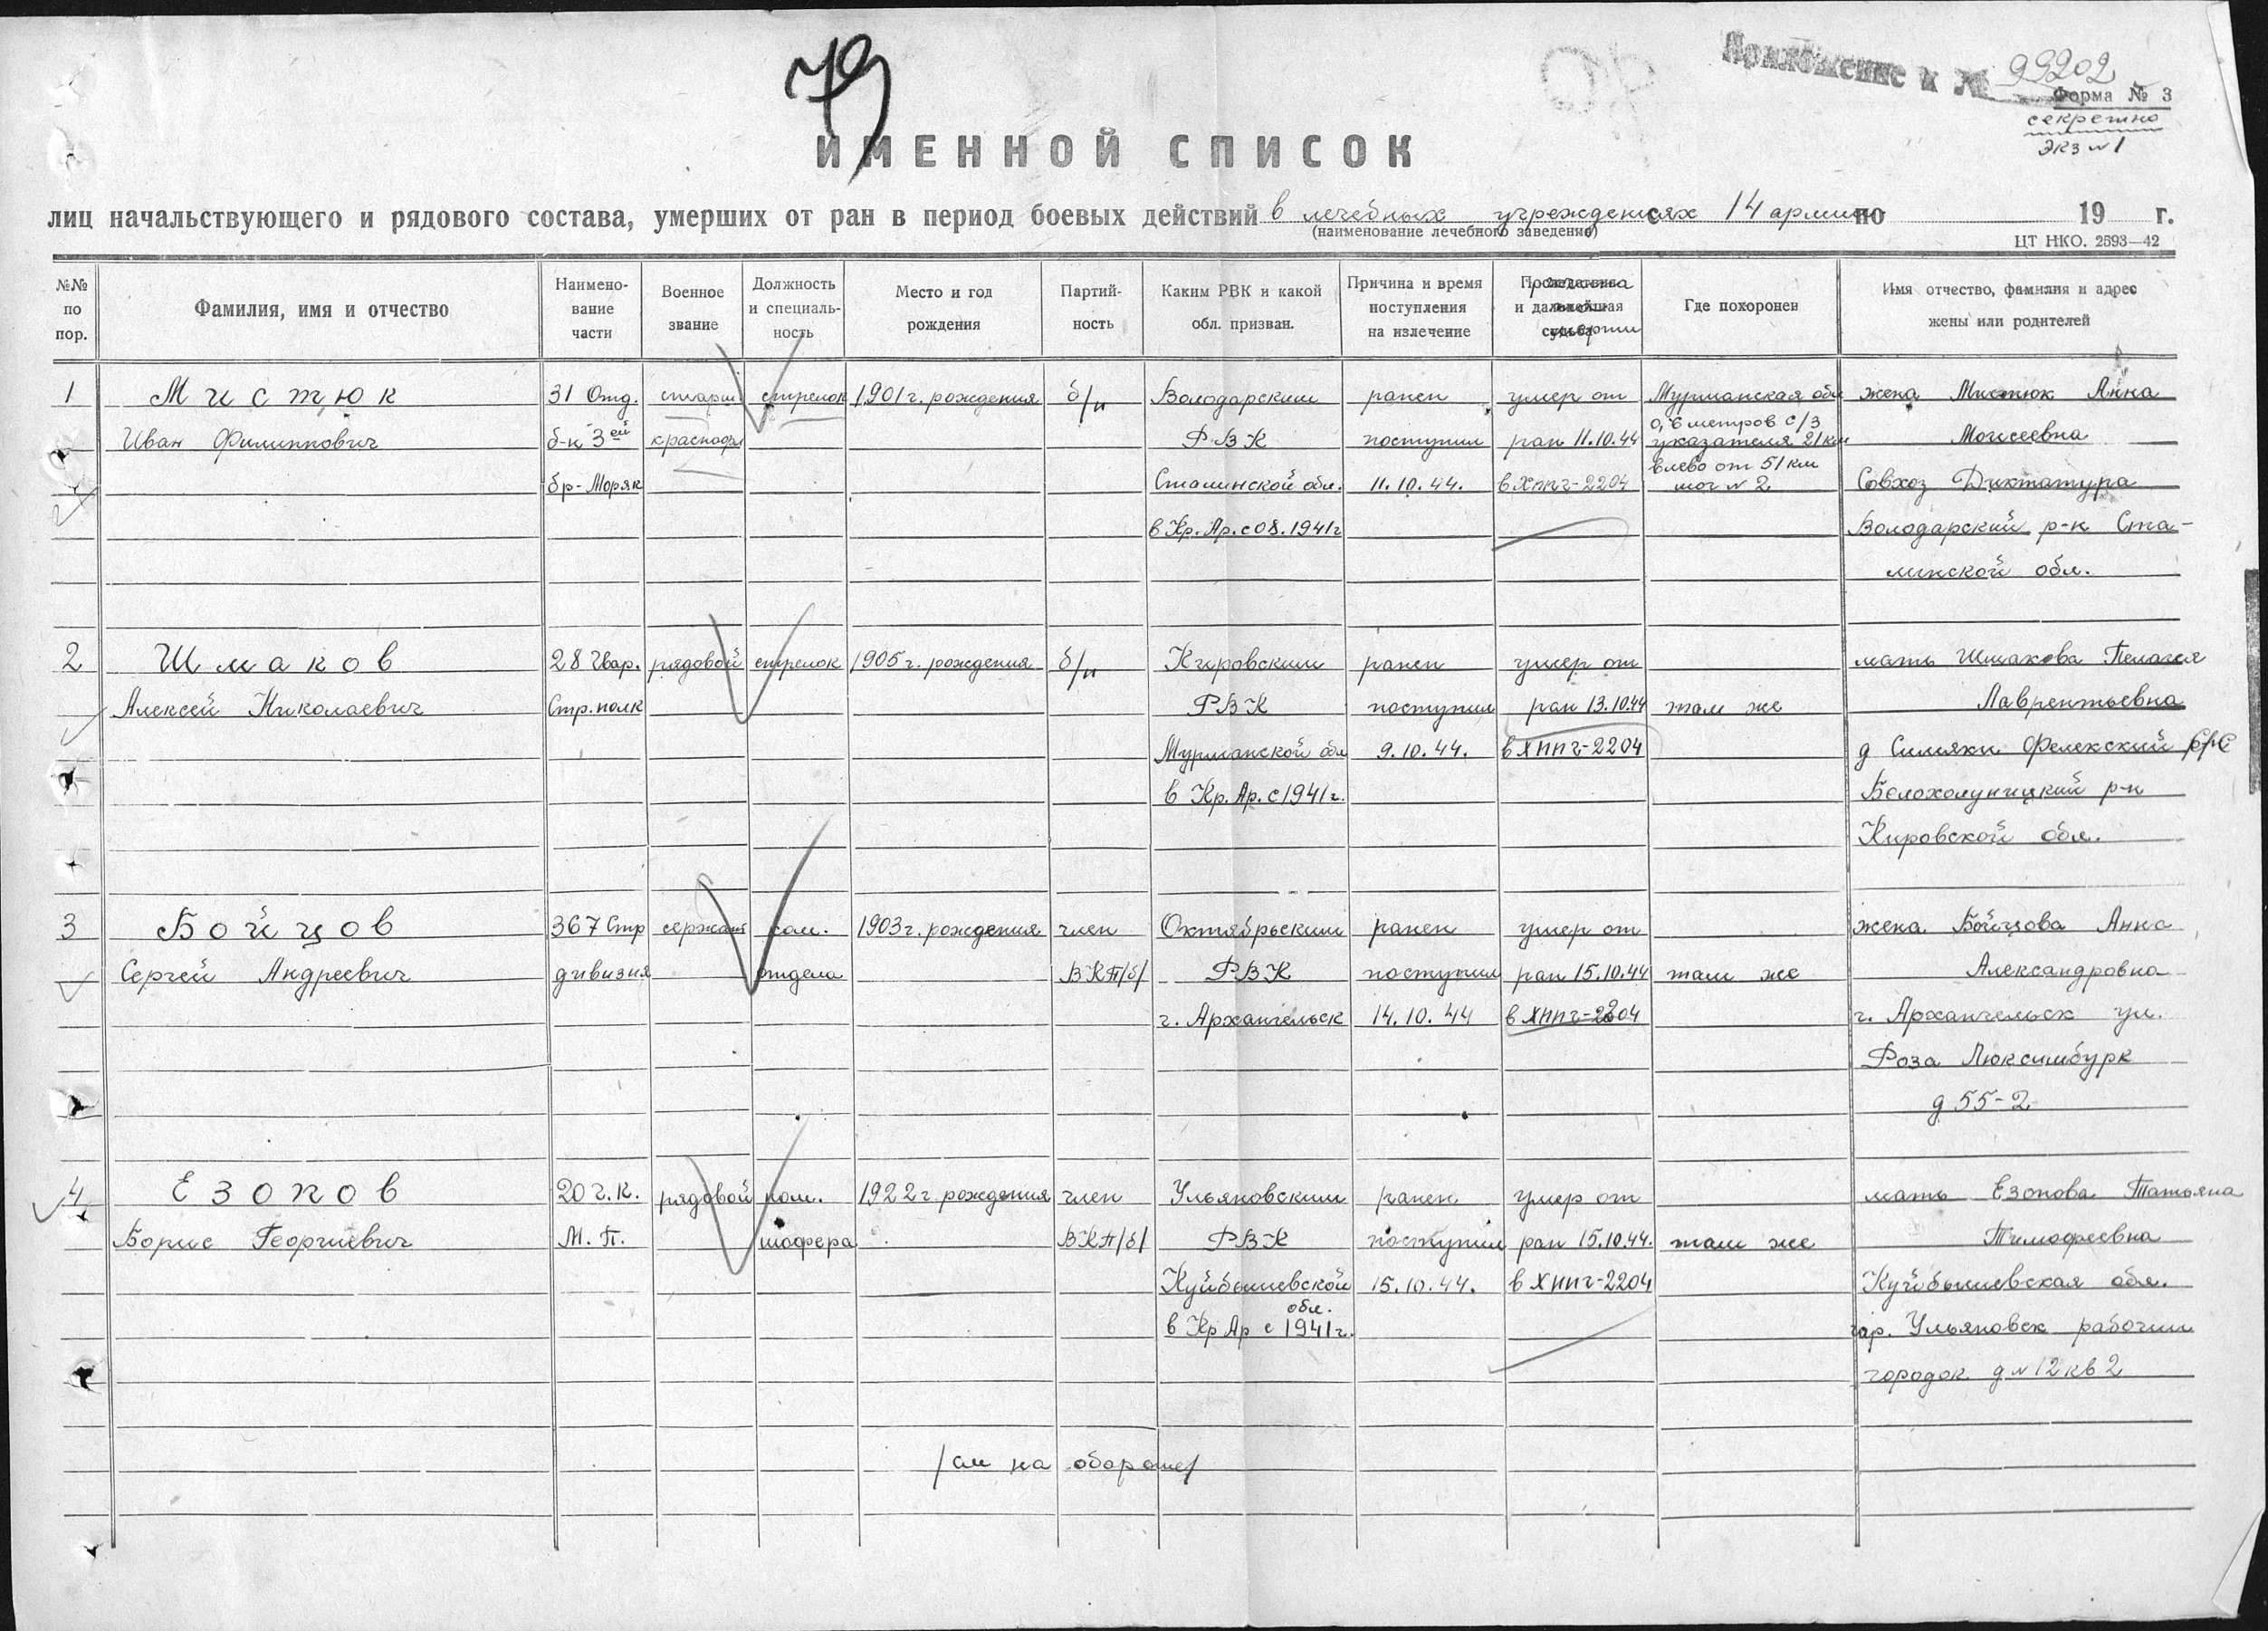 79
Приложение к № 99202
Форма № 3
секретно
Экз № 1
ИМЕННОЙ СПИСОК
лиц начальствующего и рядового состава, умерших от ран в период боевых действий в лечебных учреждениях 14 армии с по 19 г.
(наименование лечебного заведения)
ЦТ НКО. 2593—42
№№ по пор.
Фамилия, имя и отчество
Наимено-
вание
части
Военное
звание
Должность
и специаль-
ность
Место и год
рождения
Партий-
ность
Каким РВК и какой
обл. призван.
Причина и время
поступления
на излечение
и дальнейшая
судьба
смерти
Где похоронен
Имя отчество, фамилия и адрес
жены или родителей
1
Мистюк
Иван Филиппович
31 Отд.
б-н 3ей
бр-Моряк
старш.
краснофл
стрелок
1901 г. рождения
б/п
Володарским
РВК
Сталинской обл.
в Кр. Ар. с 08. 1941 г
ранен
поступил
11. 10. 44.
умер от
ран 11.10.44
в ХППГ-2204
Мурманская обл
0,6 метров С/З
указателя 21 км
влево от 51 км
мог № 2
жена Мистюк Анна
Моисеевна
Совхоз Диктатура
Володарский р-н Ста-
линской обл.
2
Шмаков
Алексей Николаевич
28 Гвар.
Стр. полк
рядовой
стрелок
1905 г. рождения
б/п
Кировским
РВК
Мурманской обл
в Кр. Ар. с 1941 г.
ранен
поступил
9. 10. 44.
умер от
ран 13.10.44
в ХППГ-2204
там же
мать Шмакова Пелагея
Лаврентьевна
д Симяки Фелекский с/с
Белохолуницкий р-н
Кировской обл.
3
Бойцов
Сергей Андреевич
367 Стр
дивизия
сержант
отдела
1903 г. рождения
член
ВКП/б/
Октябрьским
РВК
г. Архангельск
ранен
поступил
14. 10. 44
умер от
ран 15.10.44
в ХППГ-2204
там же
жена Бойцова Анна
Александровна
г. Архангельск ул.
Роза Люксимбурк
д 55-2
4
Езопов
Борис Георгиевич
20 г. к.
М. П.
рядовой
пом.
шофера
1922 г рождения
член
ВКП/б/
Ульяновским
РВК
Куйбышевской
обл.
в Кр Ар с 1941 г.
ранен
поступил
15. 10. 44.
умер от
ран 15.10.44.
в ХППГ-2204
там же
мать Езопова Татьяна
Тимофеевна
Куйбышевская обл.
гор. Ульяновск рабочий
городок д № 12 кв 2
/см на обороте/